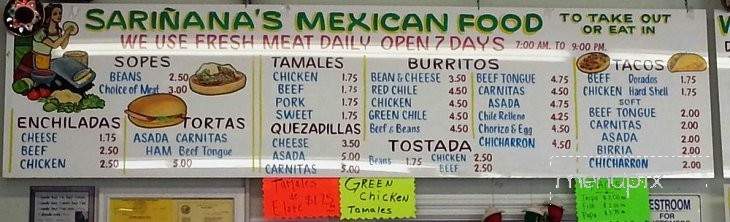 SARIÑANA'S MEXICAN FOOD
TO TAKE OUT
OR EAT IN
WE USE FRESH MEAT DAILY OPEN 7 DAYS 7:00 AM. TO 9:00 PM.
SOPES
BEANS 2.50
Choice of Meat 3.00
ENCHILADAS
CHEESE 1.75
BEEF 2.50
CHICKEN 2.50
TORTAS
ASADA CARNITAS
HAM Beef Tongue
5.00
TAMALES
CHICKEN 1.75
BEEF 1.75
PORK 1.75
SWEET 1.75
QUEZADILLAS
CHEESE 3.50
ASADA 5.00
CARNITAS 5.00
BURRITOS
BEAN & CHEESE 3.50
RED CHILE 4.50
CHICKEN 4.50
GREEN CHILE 4.50
Beef & Beans 4.50
BEEF TONGUE 4.75
CARNITAS 4.50
ASADA 4.75
Chile Relleno 4.25
Chorizo & Egg 4.50
CHICHARRON 4.50
TOSTADA
Beans 1.75
CHICKEN 2.50
BEEF 2.50
TACOS
BEEF Dorados
CHICKEN Hard Shell 1.75
SOFT
BEEF TONGUE 2.00
CARNITAS 2.00
ASADA 2.00
BIRRIA 2.00
CHICHARRON 2.00
menupix
Tamales
de
Elote $1.75
GREEN
Chicken
Tamales
ESTROOM